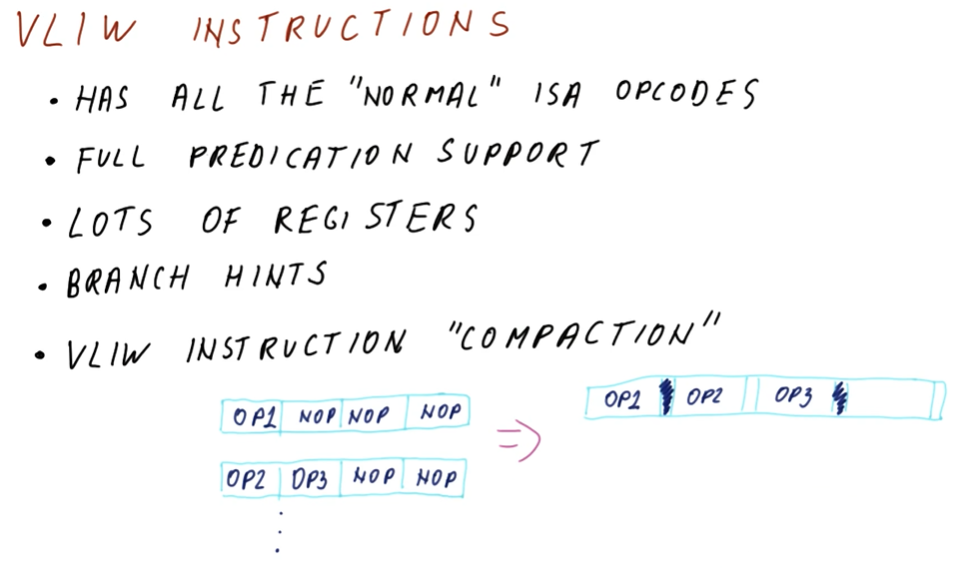 VLIW INSTRUCTIONS
• HAS ALL THE "NORMAL" ISA OPCODES
• FULL PREDICATION SUPPORT
• LOTS OF REGISTERS
• BRANCH HINTS
• VLIW INSTRUCTION "COMPACTION"
OP1 NOP NOP NOP ⇒ OP1 OP2 OP3
OP2 OP3 NOP NOP